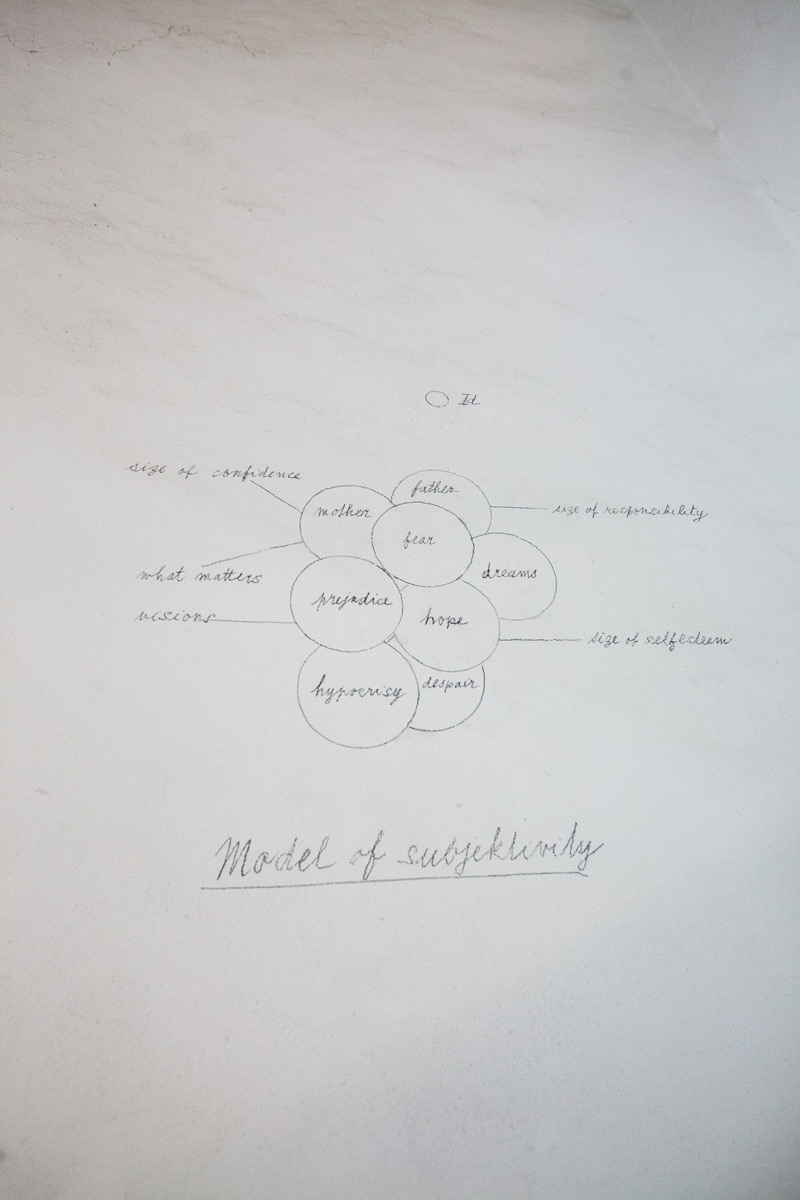 Id
size of confidence
father
mother
size of responsibility
fear
what matters
dreams
prejudice
visions
hope
size of selfesteem
hypocrisy
despair
Model of subjektivity